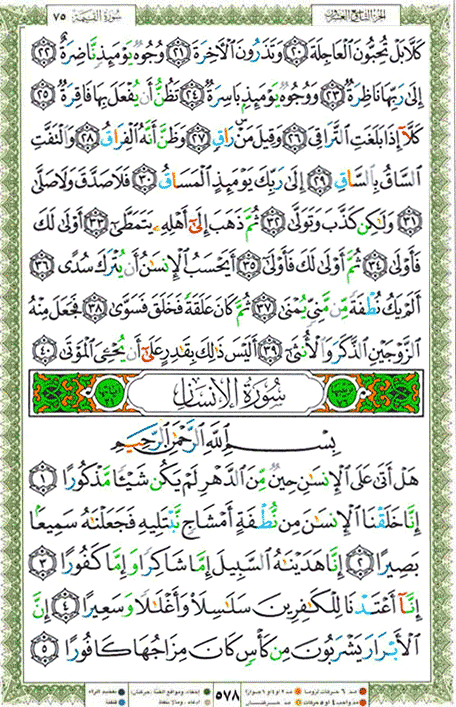 سُورَةُ القِيَامَةِ ٧٥
كَلَّا بَلْ تُحِبُّونَ ٱلْعَاجِلَةَ ٢٠ وَتَذَرُونَ ٱلْأٓخِرَةَ ٢١ وُجُوهٌ يَوْمَئِذٍ نَّاضِرَةٌ ٢٢
إِلَىٰ رَبِّهَا نَاظِرَةٌ ٢٣ وَوُجُوهٌ يَوْمَئِذٍۭ بَاسِرَةٌ ٢٤ تَظُنُّ أَن يُفْعَلَ بِهَا فَاقِرَةٌ ٢٥
كَلَّآ إِذَا بَلَغَتِ ٱلتَّرَاقِىَ ٢٦ وَقِيلَ مَنْ رَاقٍ ٢٧ وَظَنَّ أَنَّهُ ٱلْفِرَاقُ ٢٨ وَٱلْتَفَّتِ
ٱلسَّاقُ بِٱلسَّاقِ ٢٩ إِلَىٰ رَبِّكَ يَوْمَئِذٍ ٱلْمَسَاقُ ٣٠ فَلَا صَدَّقَ وَلَا صَلَّىٰ
٣١ وَلَٰكِن كَذَّبَ وَتَوَلَّىٰ ٣٢ ثُمَّ ذَهَبَ إِلَىٰٓ أَهْلِهِۦ يَتَمَطَّىٰٓ ٣٣ أَوْلَىٰ لَكَ
فَأَوْلَىٰ ٣٤ ثُمَّ أَوْلَىٰ لَكَ فَأَوْلَىٰٓ ٣٥ أَيَحْسَبُ ٱلْإِنسَٰنُ أَن يُتْرَكَ سُدًى ٣٦
أَلَمْ يَكُ نُطْفَةً مِّن مَّنِىٍّ يُمْنَىٰ ٣٧ ثُمَّ كَانَ عَلَقَةً فَخَلَقَ فَسَوَّىٰ ٣٨ فَجَعَلَ مِنْهُ
ٱلزَّوْجَيْنِ ٱلذَّكَرَ وَٱلْأُنثَىٰٓ ٣٩ أَلَيْسَ ذَٰلِكَ بِقَٰدِرٍ عَلَىٰٓ أَن يُحْـِۧىَ ٱلْمَوْتَىٰ ٤٠
سُورَةُ الإِنسَانِ
بِسْمِ ٱللَّهِ ٱلرَّحْمَٰنِ ٱلرَّحِيمِ
هَلْ أَتَىٰ عَلَى ٱلْإِنسَٰنِ حِينٌ مِّنَ ٱلدَّهْرِ لَمْ يَكُن شَيْـًٔا مَّذْكُورًا ١
إِنَّا خَلَقْنَا ٱلْإِنسَٰنَ مِن نُّطْفَةٍ أَمْشَاجٍ نَّبْتَلِيهِ فَجَعَلْنَٰهُ سَمِيعًۢا
بَصِيرًا ٢ إِنَّا هَدَيْنَٰهُ ٱلسَّبِيلَ إِمَّا شَاكِرًا وَإِمَّا كَفُورًا ٣
إِنَّآ أَعْتَدْنَا لِلْكَٰفِرِينَ سَلَٰسِلَا۟ وَأَغْلَٰلًا وَسَعِيرًا ٤ إِنَّ
ٱلْأَبْرَارَ يَشْرَبُونَ مِن كَأْسٍ كَانَ مِزَاجُهَا كَافُورًا ٥
٥٧٨